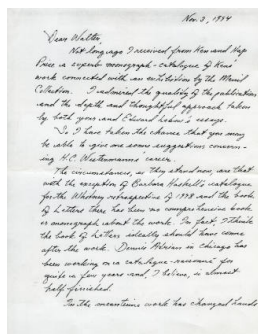 Nov. 3, 1994
Dear Walter,
Not long ago I received from Ken and Hap
Price a superb monograph-catalogue of Ken's
work connected with an exhibition by the Menil
Collection. I admired the quality of the publication
and the depth and thoughtful approach taken
by both yours and Edward Lebow's essays.
So I have taken the chance that you may
be able to give me some suggestions concern-
ing H.C. Westermann's career.
The circumstances, as they stand now, are that
with the exception of Barbara Haskell's catalogue
for the Whitney retrospective of 1978 and the book
of Letters there has been no comprehensive book
or monograph about the work. In fact, I think
the book of Letters ideally should have come
after the work. Dennis Adrian in Chicago has
been working on a catalogue raisonné for
quite a few years and, I believe, is almost
half finished.
In the meantime work has changed hands